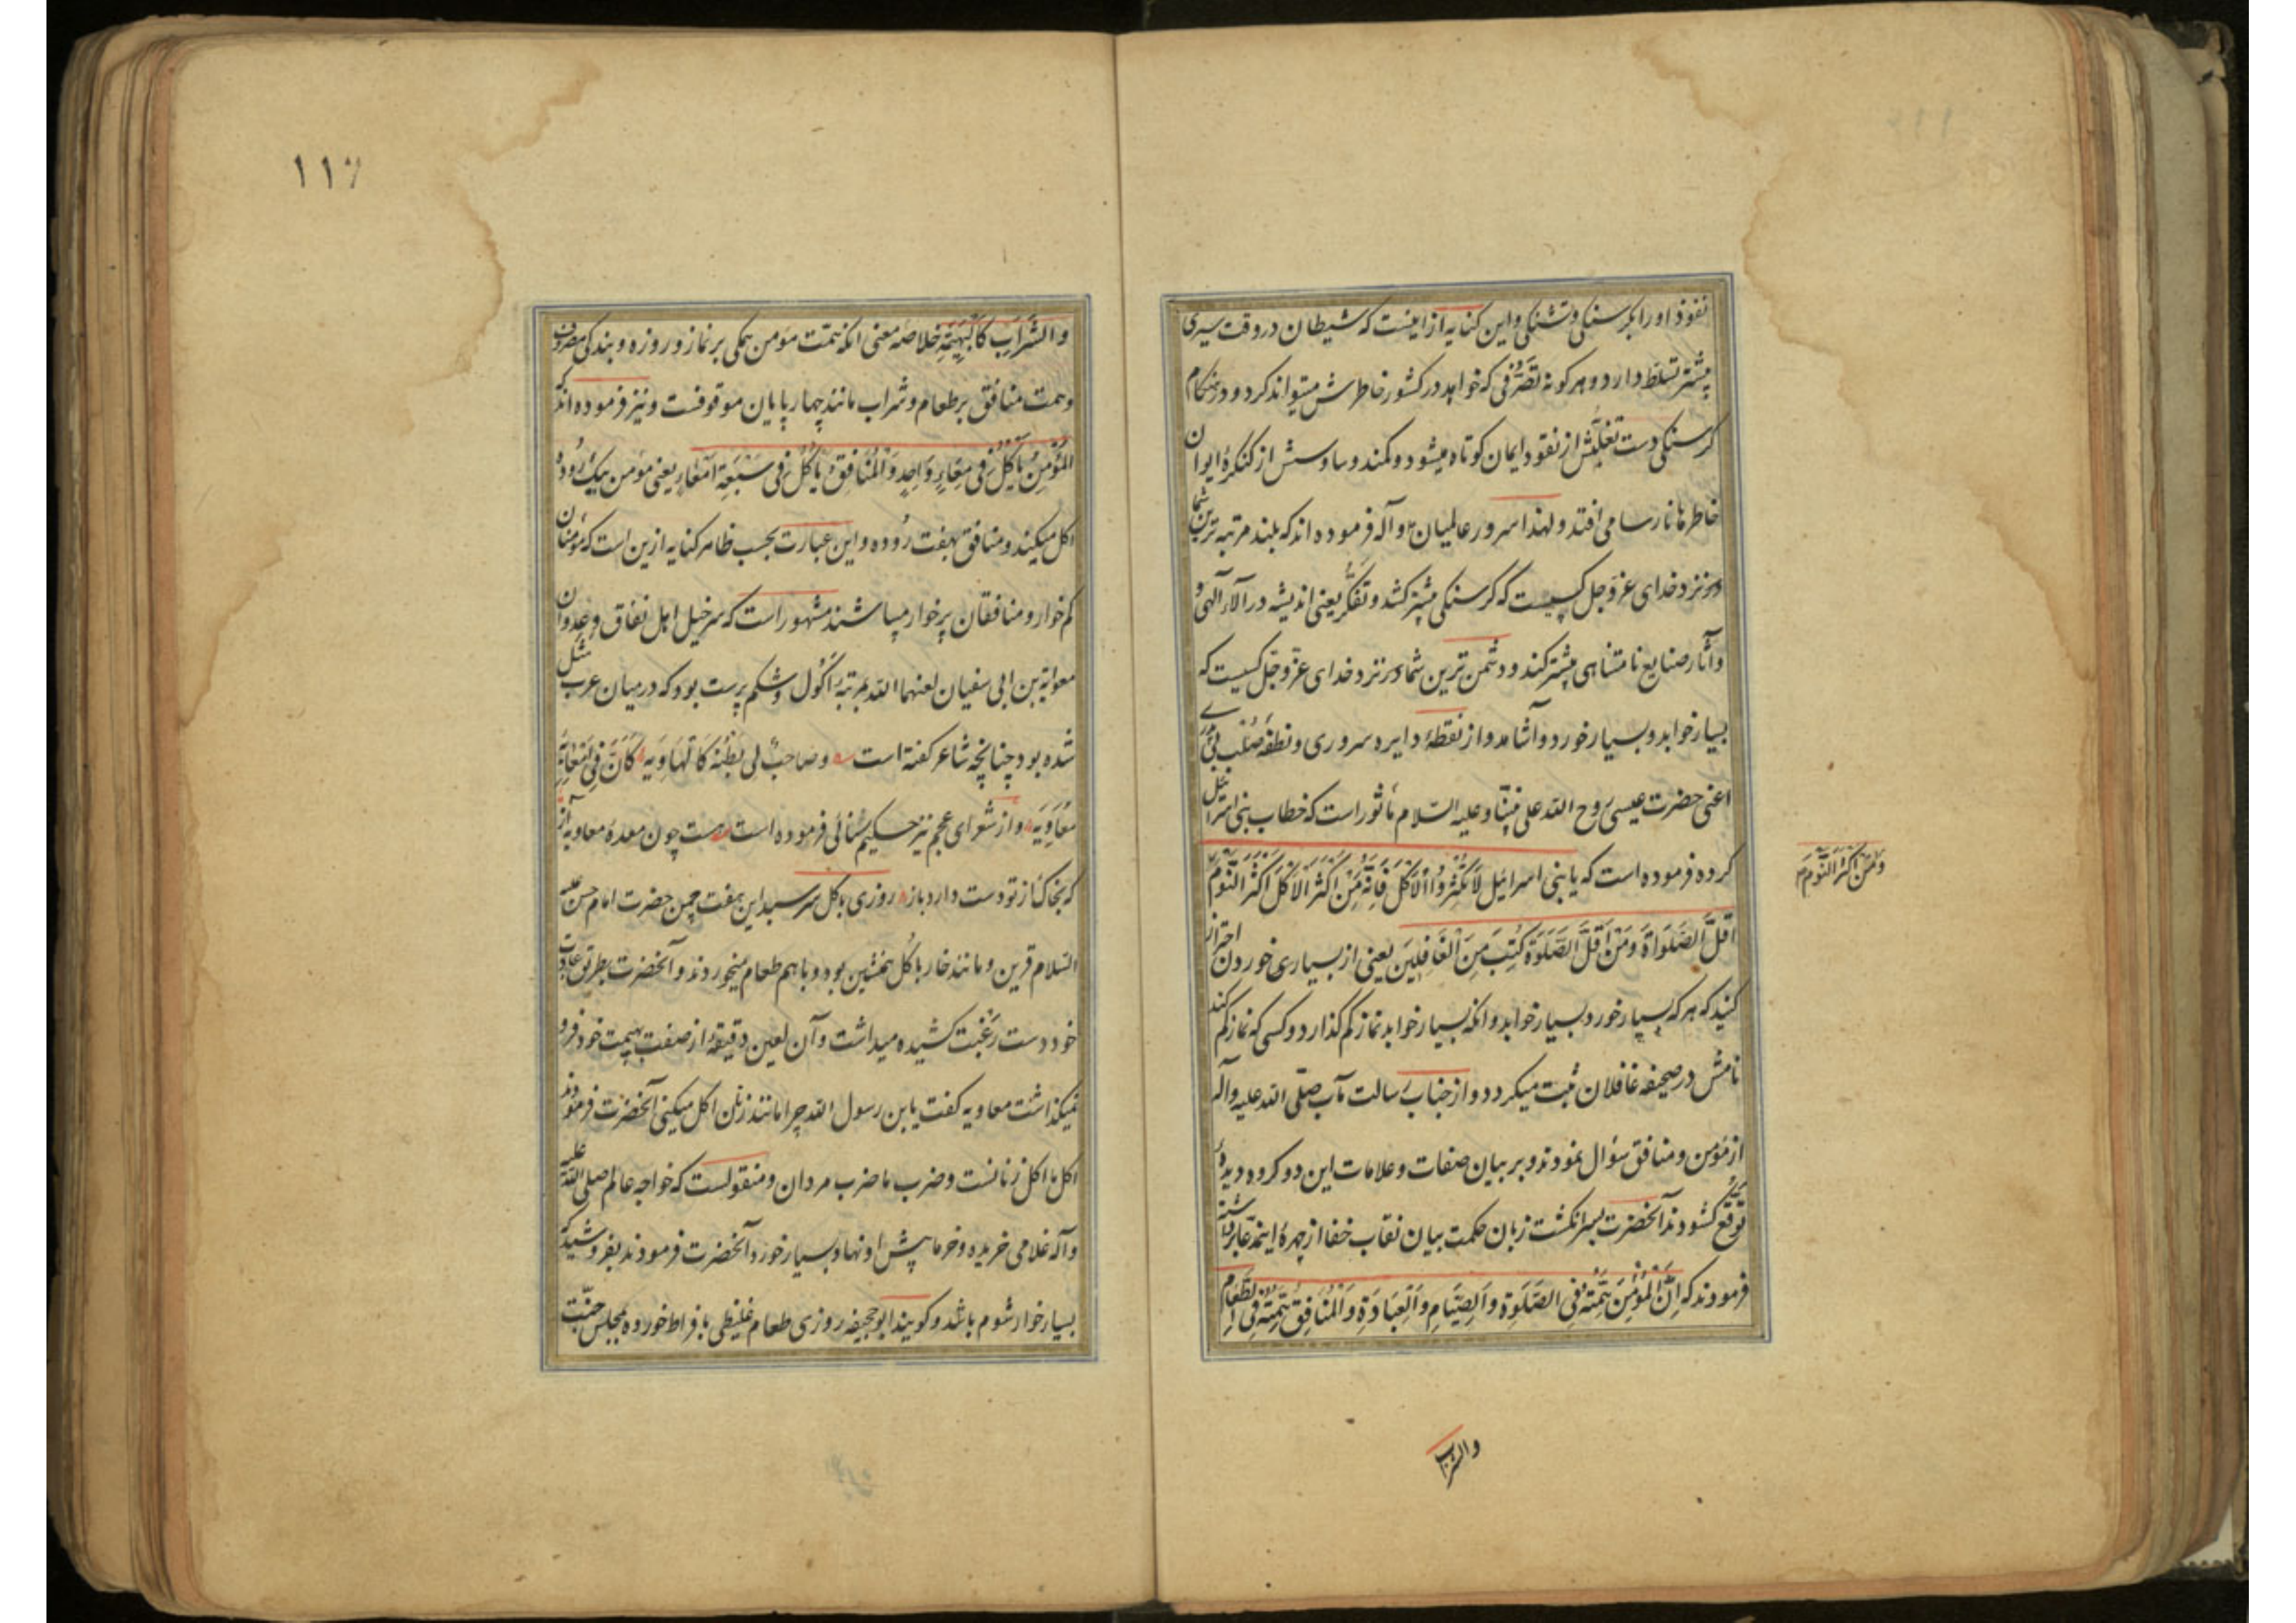 نفوذ او را بگرسنگی و تشنگی و این کنایه از اینست که شیطان در وقت سیری
بیشتر تسلط دارد و هر کونه تصرفی که خواهد در کشور خاطرش میتواند کرد و در هنکام
کرسنکی دست تغلبش از نقود ایمان کوتاه میشود و کمند وساوسش از کنکرهٔ ایوان
خاطرها نارسا می افتد و لهذا سرور عالمیان و آله فرموده اند که بلند مرتبه ترین شما
در نزد خدای عز و جل کسیست که کرسنکی بیشتر کشد و تفکر یعنی اندیشه در آلاء آلهی و
و آثار صنایع نامتناهی بیشتر کند و دشمن ترین شما در نزد خدای عز و جل کسیست که
بسیار خوابد و بسیار خورد و آشامد و از نقطهٔ دایره سروری و نطفهٔ صلب
اعنی حضرت عیسی روح الله علی نبینا و علیه السلام مأثور است که خطاب بنی اسرائیل
کرده فرموده است که یا بنی اسرائیل لَا تُکْثِرُوا الْاَکْلَ فَاِنَّهُ مَنْ اَکْثَرَ الْاَکْلَ اَکْثَرَ النَّوْمَ
وَ مَنْ اَکْثَرَ النَّوْمَ
اَقَلَّ الصَّلَوٰةَ وَمَنْ اَقَلَّ الصَّلَوٰةَ کُتِبَ مِنَ الْغَافِلِینَ یعنی از بسیاری خوردن احتراز
کنید که هر که بسیار خورد بسیار خوابد و انکه بسیار خوابد نماز کم کذارد و کسی که نماز کم کند
نامش در صحیفه غافلان ثبت میکردد و از جناب رسالت مآب صلی الله علیه وآله
از مؤمن و منافق سؤال نمودند و بر بیان صفات و علامات این دو کروه دیدهٔ
توقع کشودند آنحضرت بسرانکشت زبان حکمت بیان نقاب خفا از چهرهٔ این مدعا برداشته
فرمودند که اِنَّ الْمُؤْمِنَ هِمَّتُهُ فِی الصَّلَوٰةِ وَ الصِّیَامِ وَ الْعِبَادَةِ وَ الْمُنَافِقُ هِمَّتُهُ فِی الطَّعَامِ
والشراب
۱۱۷
و الشَّرَابِ کَالْبَهِیمَةِ خلاصهٔ معنی انکه همت مؤمن همکی بر نماز و روزه و بندکی مصروف
و همت منافق بر طعام و شراب مانند چهارپایان موقوفست و نیز فرموده اند که
الْمُؤْمِنُ یَاْکُلُ فِی مِعَاءٍ وَاحِدٍ وَ الْمُنَافِقُ یَاْکُلُ فِی سَبْعَةِ اَمْعَاءٍ یعنی مؤمن بیک روده
اکل میکند و منافق بهفت روده و این عبارت بحسب ظاهر کنایه ازین است که مؤمنان
کم خوار و منافقان پرخوار میباشند مشهور است که سرخیل اهل نفاق و عدوان
معویة بن ابی سفیان لعنهما الله بمرتبهٔ اکول و شکم پرست بود که در میان عرب مثل
شده بود چنانچه شاعر کفته است وصاحبٌ لی بطنُه کالهاویه کَاَنَّ فِی اَمْعَائِهِ
مُعَاوِیَه و از شعرای عجم نیز حکیم سنائی فرموده است هست چون معدهٔ معاویه آز
که بخاک از تو دست دارد باز روزی با کل سر سبد این هفت چمن حضرت امام حسن علیه
السلام قرین و مانند خار با کل همنشین بود و با هم طعام میخوردند و آنحضرت بطریق عادت
خود دست رغبت کشیده میداشت و آن لعین دقیقهٔ از صفت بهیمت خود فرو
نمیکذاشت معاویه کفت یابن رسول الله چرا مانند زنان اکل میکنی آنحضرت فرمودند
اکل ما اکل زنانست و ضرب ما ضرب مردان و منقولست که خواجه عالم صلی الله علیه
وآله غلامی خریده و خرما پیش او نهاد بسیار خورد آنحضرت فرمودند بفروشید که
بسیار خوار شوم باشد و کویند ابو جحیفه روزی طعام غلیظی بافراط خورده بمجلس جنّت